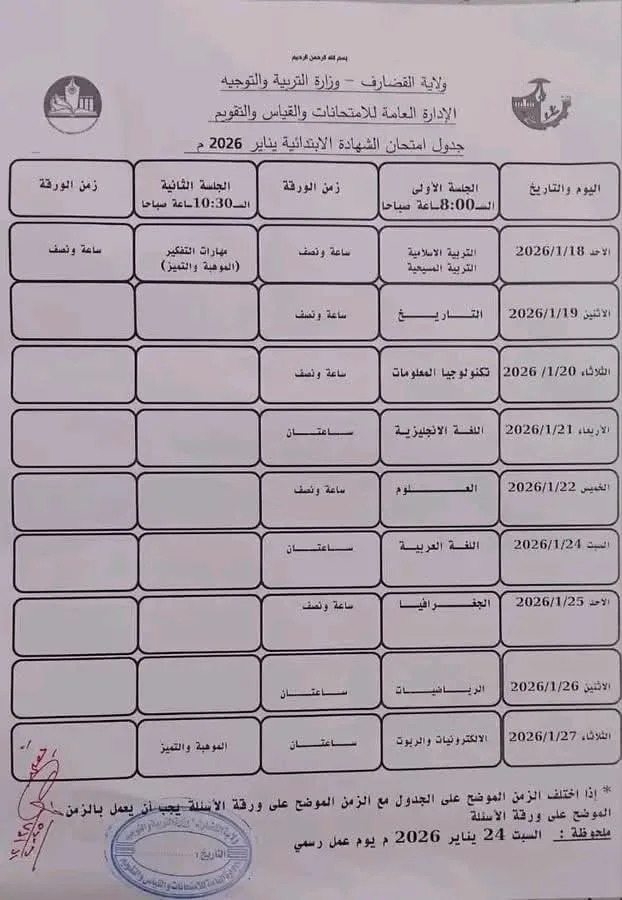 بسم الله الرحمن الرحيم
ولاية القضارف – وزارة التربية والتوجيه
الإدارة العامة للامتحانات والقياس والتقويم
جدول امتحان الشهادة الابتدائية يناير 2026 م
اليوم والتاريخ الجلسة الأولى الســ8:00ــاعة صباحا زمن الورقة الجلسة الثانية الســ10:30ــاعة صباحا زمن الورقة
الاحد 2026/1/18 التربية الاسلامية التربية المسيحية ساعة ونصف مهارات التفكير (الموهبة والتميز) ساعة ونصف
الاثنين 2026/1/19 التـاريـــخ ساعة ونصف
الثلاثاء 2026 /1/20 تكنولوجيا المعلومات ساعة ونصف
الأربعاء 2026/1/21 اللغة الانجليزية ســـاعتـــان
الخميس 2026/1/22 العـــــلوم ساعة ونصف
السبت 2026/1/24 اللغة العربية ســـاعتـــان
الاحد 2026/1/25 الجغـرافيـــا ساعة ونصف
الاثنين 2026/1/26 الريـاضيـــات ســـاعتـــان
الثلاثاء 2026/1/27 الالكترونيات والربوت ســـاعتـــان الموهبة والتميز
* إذا اختلف الزمن الموضح على الجدول مع الزمن الموضح على ورقة الأسئلة يجب أن يعمل بالزمن
الموضح على ورقة الأسئلة
ملحوظة : السبت 24 يناير 2026 م يوم عمل رسمي
ولاية القضارف وزارة التربية والتوجيه
التاريخ:
الإدارة العامة للامتحانات والقياس والتقويم